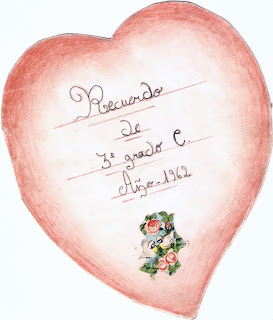 Recuerdo
de
3º grado C.
Año-1962